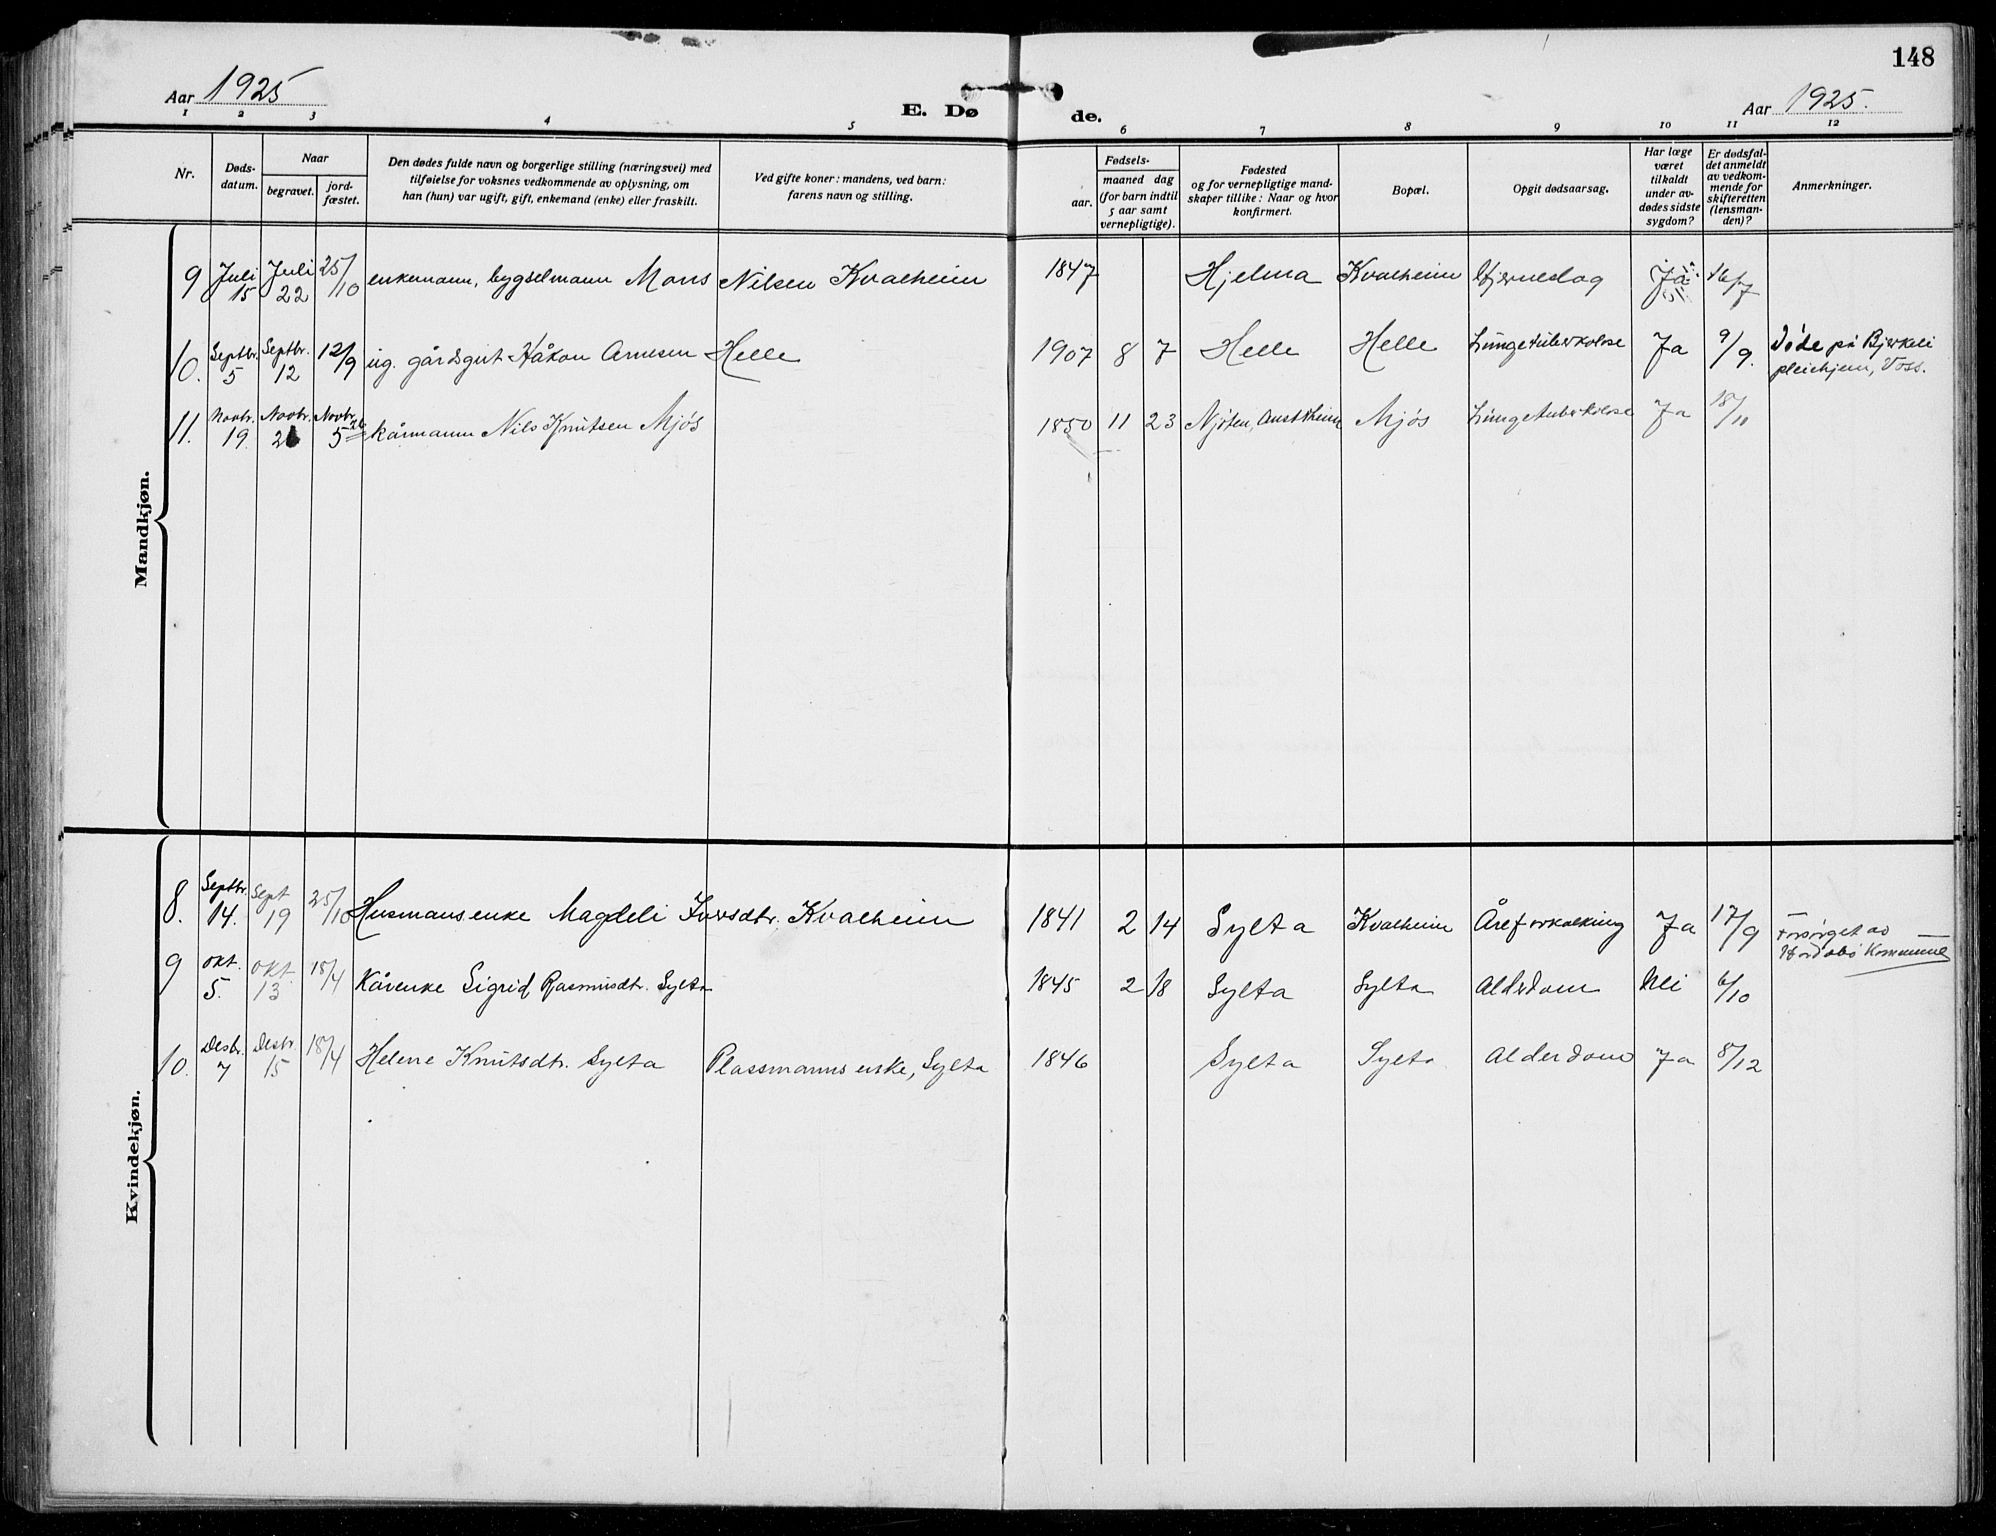 148
Aar 1925
E. Døde.
Aar 1925.
1 2 3 4 5 6 7 8 9 10 11 12
Nr.
Døds-
datum.
Naar
begravet.
jord-
fæstet.
Den dødes fulde navn og borgerlige stilling (næringsvei) med
tilføielse for voksnes vedkommende av oplysning, om
han (hun) var ugift, gift, enkemand (enke) eller fraskilt.
Ved gifte koner: mandens, ved barn:
farens navn og stilling.
Fødsels-
aar.
maaned dag
(for barn indtil
5 aar samt
vernepligtige).
Fødested
og for vernepligtige mand-
skaper tillike: Naar og hvor
konfirmert.
Bopæl.
Opgit dødsaarsag.
Har læge
været
tilkaldt
under av-
dødes sidste
sygdom?
Er dødsfal-
det anmeldt
av vedkom-
mende for
skifteretten
(lensman-
den)?
Anmerkninger.
Mandkjøn.
9 Juli 15 Juli 22 25/10 enkemann, bygselmann Mons Nilsen Kvalheim 1847 Hjelma Kvalheim Hjerneslag Ja 16/7
10. Septbr. 5 Septbr. 12 12/9 ug. gårdsgut Håkon Arnesen Helle 1907 8 7 Helle Helle Lungetuberkolose Ja 9/9. Døde på Bjerkeli
pleiehjem, Voss.
11. Novbr. 19 Novbr. 26 Novbr. 26 kårmann Nils Knutsen Mjøs 1850 11 23 Njøten, Austrheim Mjøs Lungetuberkolose Ja 18/11
Kvindekjøn.
8. Septbr. 14. Sept 19 25/10 Husmansenke Magdeli Iversdtr. Kvalheim 1841 2 14 Sylta Kvalheim Åreforkalkning Ja 17/9 Forsørget av
Hordabø Kommune
9 Okt. 5. Okt. 13 18/4 Kårenke Sigrid Rasmusdtr. Sylta 1845 2 18 Sylta Sylta Alderdom Nei 6/10
10. Desbr. 7 Desbr. 15 18/4 Helene Knutsdtr. Sylta Plassmanns enke, Sylta 1846 Sylta Sylta Alderdom Ja 8/12